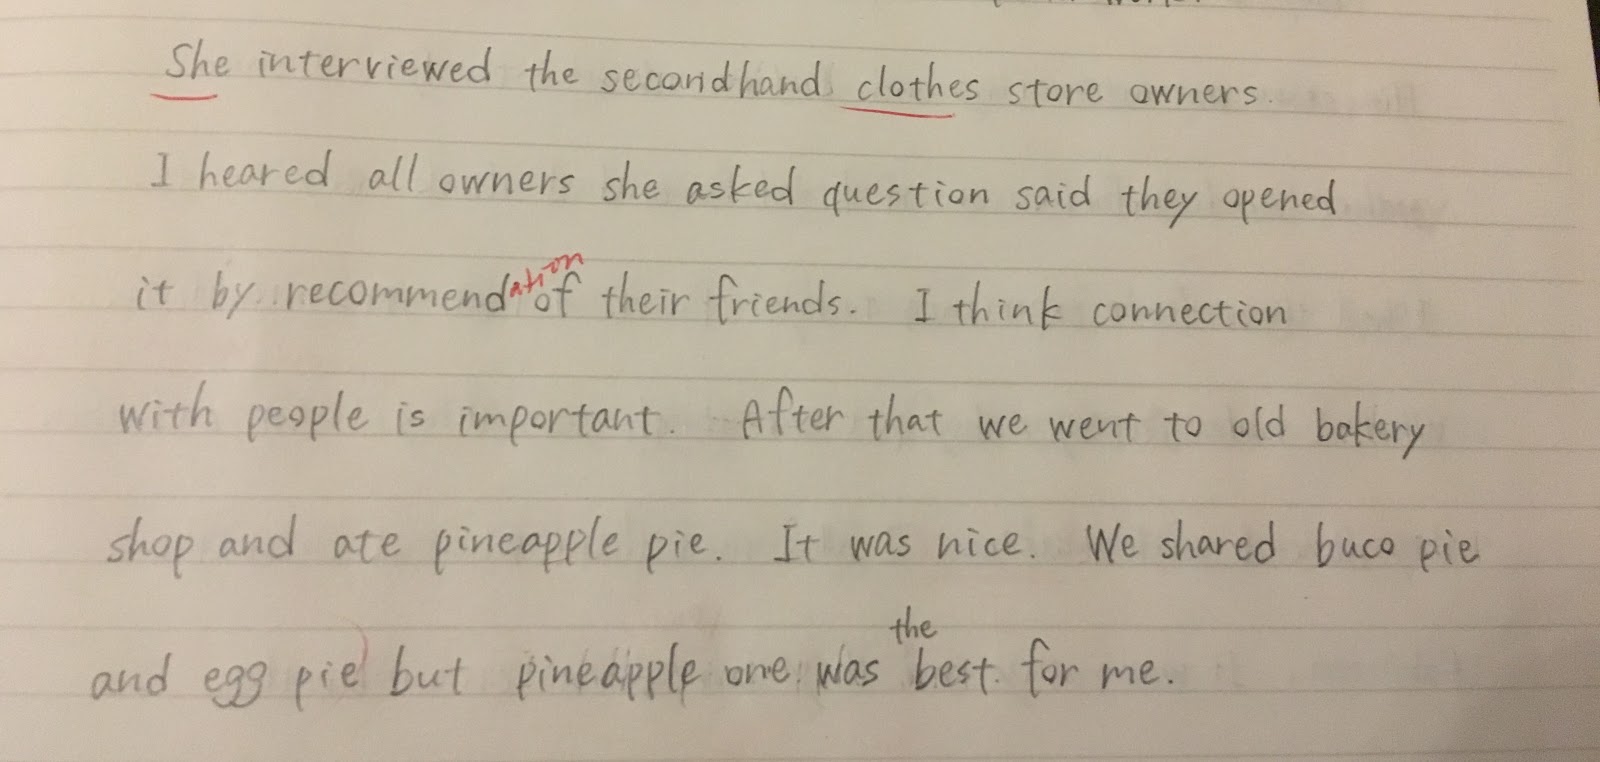 She interviewed the secondhand clothes store owners.
I heared all owners she asked question said they opened
it by recommendation of their friends. I think connection
with people is important. After that we went to old bakery
shop and ate pineapple pie. It was nice. We shared buco pie
and egg pie but pineapple one was the best for me.